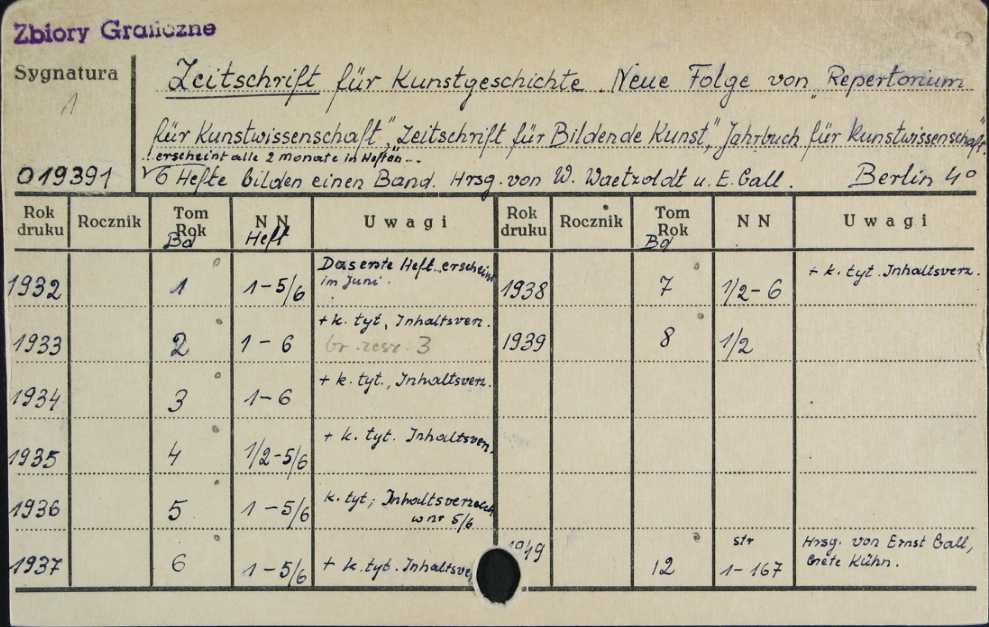 Zbiory Graficzne
Sygnatura
1
019391
Zeitschrift für Kunstgeschichte. Neue Folge von „Repertorium
für Kunstwissenschaft", „Zeitschrift für Bildende Kunst", „Jahrbuch für Kunstwissenschaft".
erscheint alle 2 Monate in Heften
6 Hefte bilden einen Band. Hrsg. von W. Waetzoldt u. E. Gall. Berlin 4°
Rok druku Rocznik Tom Rok N N U w a g i Rok druku Rocznik Tom Rok N N U w a g i
Bd Heft Bd
1932 1 1-5/6 Das erste Heft erscheint im Juni. 1938 7 1/2-6 + k. tyt. Inhaltsverz.
1933 2 1-6 + k. tyt, Inhaltsverz. 3 1939 8 1/2
1934 3 1-6 + k. tyt., Inhaltsverz.
1935 4 1/2-5/6 + k. tyt. Inhaltsverz.
1936 5 1-5/6 k. tyt; Inhaltsverzeich w nr 5/6
1937 6 1-5/6 + k. tyt. Inhaltsve 1949 12 str 1-167 Hrsg. von Ernst Gall, Grete Kühn.